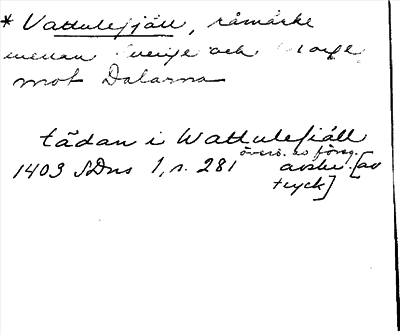 * Vattulefjäll, råmärke
mellan Sverige och Norge
mot Dalarna
tädan i Wattulefiäll
1403 SDns 1, s. 281 avskr. [av
övers. av föreg.
tryck]